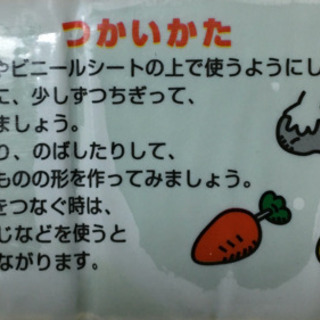 つかいかた
やビニールシートの上で使うようにし
に、少しずつちぎって、
ましょう。
り、のばしたりして、
ものの形を作ってみましょう。
をつなぐ時は、
じなどを使うと
ながります。